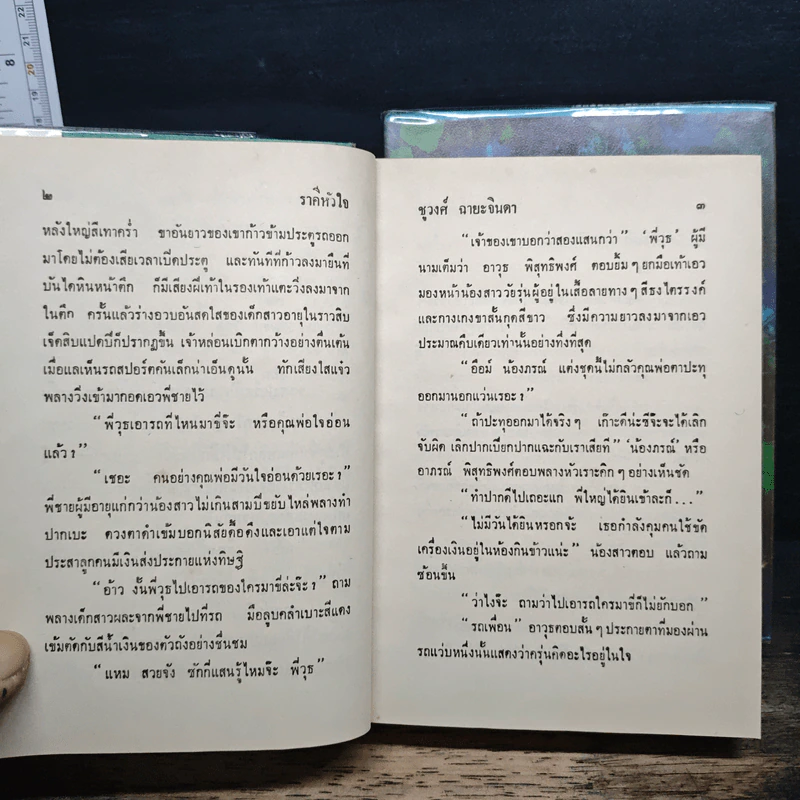 ๒ ราคีหัวใจ
หลังใหญ่สีเทาคร่ำ ขาอันยาวของเขาก้าวข้ามประตูรถออก
มาโดยไม่ต้องเสียเวลาเปิดประตู และทันทีที่ก้าวลงมายืนที่
บันไดหินหน้าตึก ก็มีเสียงฝีเท้าในรองเท้าแตะวิ่งลงมาจาก
ในตึก ครั้นแล้วร่างอวบอันสดใสของเด็กสาวอายุในราวสิบ
เจ็ดสิบแปดปีก็ปรากฏขึ้น เจ้าหล่อนเบิกตากว้างอย่างตื่นเต้น
เมื่อแลเห็นรถสปอร์ตคันเล็กน่าเอ็นดูนั้น ทักเสียงใสแจ๋ว
พลางวิ่งเข้ามากอดเอวพี่ชายไว้
“พี่วุธเอารถที่ไหนมาขี่จ๊ะ หรือคุณพ่อใจอ่อน
แล้ว ?”
“เชอะ คนอย่างคุณพ่อมีวันใจอ่อนด้วยเรอะ ?”
พี่ชายผู้มีอายุแก่กว่าน้องสาวไม่เกินสามปีขยับไหล่พลางทำ
ปากเบะ ดวงตาดำเข้มบอกนิสัยดื้อดึงและเอาแต่ใจตาม
ประสาลูกคนมีเงินส่งประกายแห่งทิษฐิ
“อ้าว งั้นพี่วุธไปเอารถของใครมาขี่ล่ะจ๊ะ ?” ถาม
พลางเด็กสาวผละจากพี่ชายไปที่รถ มือลูบคลำเบาะสีแดง
เข้มตัดกับสีน้ำเงินของตัวถังอย่างชื่นชม
“แหม สวยจัง ซักกี่แสนรู้ไหมจ๊ะ พี่วุธ”
ชูวงศ์ ฉายะจินดา ๓
“เจ้าของเขาบอกว่าสองแสนกว่า” ‘พี่วุธ’ ผู้มี
นามเต็มว่า อาวุธ พิสุทธิพงศ์ ตอบยิ้ม ๆ ยกมือเท้าเอว
มองหน้าน้องสาววัยรุ่นผู้อยู่ในเสื้อลายทาง ๆ สีธงไตรรงค์
และกางเกงขาสั้นกุดสีขาว ซึ่งมีความยาวลงมาจากเอว
ประมาณคืบเดียวเท่านั้นอย่างทึ่งที่สุด
“อือม์ น้องภรณ์ แต่งชุดนี้ไม่กลัวคุณพ่อตาปะทุ
ออกมานอกแว่นเรอะ ?
“ถ้าปะทุออกมาได้จริง ๆ เก๊าะดีน่ะซีจ๊ะจะได้เลิก
จับผิด เลิกปากเบียกปากแฉะกับเราเสียที” ‘น้องภรณ์’ หรือ
อาภรณ์ พิสุทธิพงศ์ตอบพลางหัวเราะคิก ๆ อย่างเห็นขัน
“ทำปากดีไปเถอะแก พี่ใหญ่ได้ยินเข้าละก็...”
“ไม่มีวันได้ยินหรอกจ้ะ เธอกำลังคุมคนใช้ขัด
เครื่องเงินอยู่ในห้องกินข้าวแน่ะ” น้องสาวตอบ แล้วถาม
ซ้อนขึ้น
“ว่าไงจ๊ะ ถามว่าไปเอารถใครมาขี่ก็ไม่ยักบอก”
“รถเพื่อน” อาวุธตอบสั้น ๆ ประกายตาที่มองผ่าน
รถแว่บหนึ่งนั้นแสดงว่าครุ่นคิดอะไรอยู่ในใจ